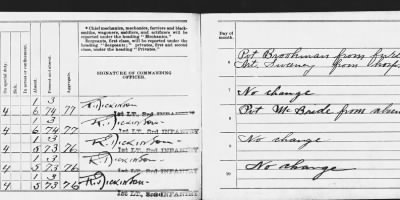 * Chief mechanics, mechanics, farriers and black-
smiths, wagoners, saddlers, and artificers will be
reported under the heading "Mechanics."
Sergeants, first class, will be reported under the
heading "Sergeants;" privates, first and second
class, under the heading "Privates."
On special duty.
Sick.
In arrest or confinement.
Absent.
Present.
Aggregate.
SIGNATURE OF COMMANDING
OFFICER.
1 3
4 6 74 77
R. Dickinson
1st LT. 2nd INFANTRY
1 3
4 6 74 77
R. Dickinson
1st LT. 2nd INFANTRY
1 3
4 5 73 76
R. Dickinson
1st LT. 2nd INFANTRY
1 3
4 5 73 76
R. Dickinson
1st LT. 2nd INFANTRY
1 3
4 5 73 76
R. Dickinson
1st LT. 2nd INFANTRY
Day of
month.
6
Pvt Brookman from
Sweeney from hosp
7
No change
8
Pvt McBride from absen
9
No change
10
No change